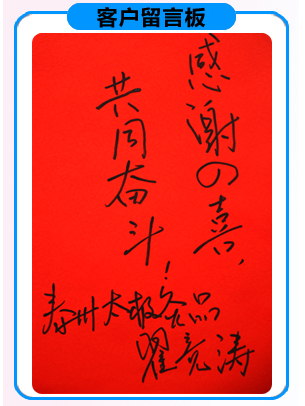 客户留言板
感谢の喜、
共同奋斗！
泰州太极食品
瞿亮涛